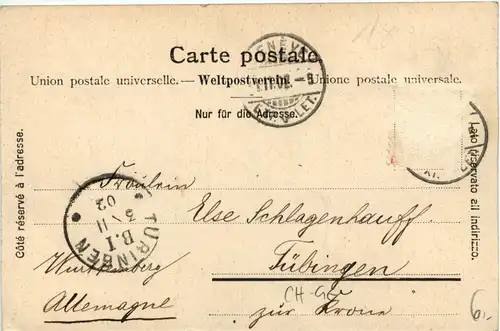 Carte postale.
Union postale universelle. — Weltpostverein. — Unione postale universale.
Nur für die Adresse.
Côté réservé à l'adresse.
Lato riservato all indirizzo.
GENÈVE
EXP. LET.
TÜBINGEN
B.I
3 XI
02
Fräulein
Else Schlagenhauff
Tübingen
Württemberg
Allemagne
zur Krone
CH-GE
6.-